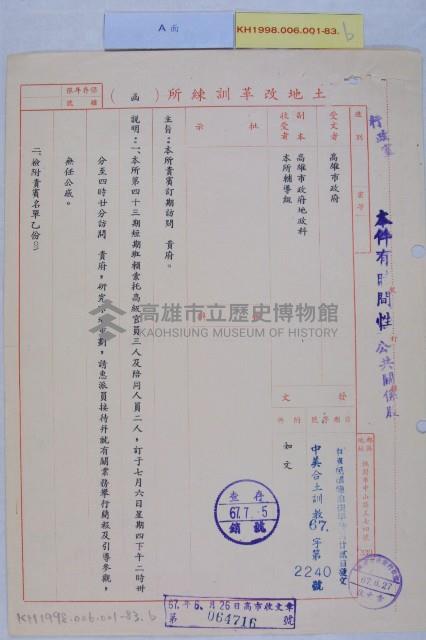 A面
KH1998.006.001-83.b
土地改革訓練所(函)
保存年限
檔號
速別
受文者 高雄市政府
副本收受者 高雄市政府地政科
本所輔導組
批示
發文
附件
如文
中美合土訓教67.字第2240號
行政室
本件有時間性
公共關係股
主旨:本所貴賓訂期訪問 貴府。
說明:一、本所第四十三期短期班賴索托高級官員三人及陪同人員二人,訂于七月六日星期四下午二時卅
分至四時廿分訪問 貴府,研究市地重劃,請惠派員接待并就有關業務舉行簡報及引導參觀,
無任公感。
二、檢附貴賓名單乙份。
高雄市立歷史博物館
KAOHSIUNG MUSEUM OF HISTORY
查存
67.7.-5
銷號
67.6.27
67.年6.月26日高市收文章
第 064716 號
KH1998.006.001-83.b